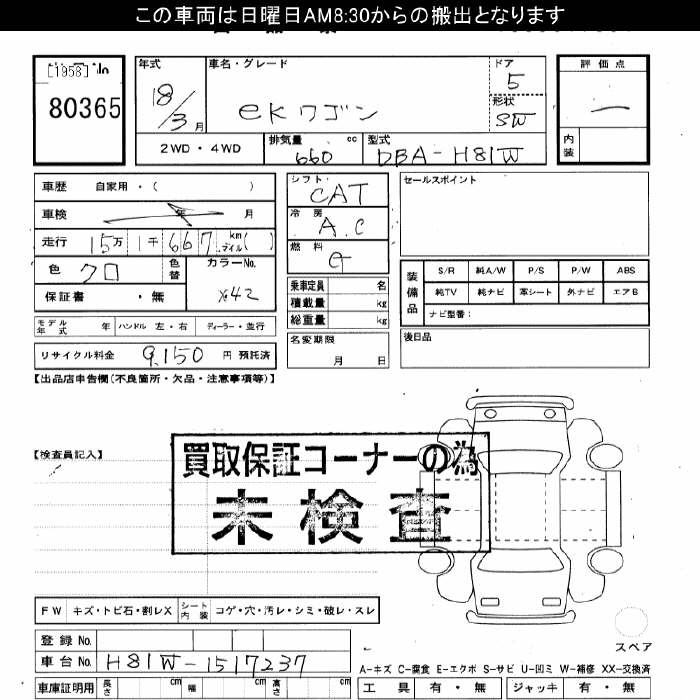 この車両は日曜日AM8:30からの搬出となります
[1958] No
80365
年式 車名・グレード ドア 評価点
18/3月 eKワゴン 5
形状 SW
2WD・4WD 排気量 660 cc 型式 DBA-H81W
内装
車歴 自家用・( )
車検 年 月
走行 15万 1千 667 km マイル( )
色 クロ 色替 カラーNo. X42
保証書 ・無
モデル年式 年 ハンドル 左・右 ディーラー・並行
リサイクル料金 9,150 円 預託済
シフト CAT
冷房 A.C
燃料 G
乗車定員 名
積載量 kg
総重量 kg
名変期限
月 日
セールスポイント
装備品 S/R 純A/W P/S P/W ABS
純TV 純ナビ 革シート 外ナビ エアB
ナビ型番:
後日品
【出品店申告欄(不良箇所・欠品・注意事項等)】
【検査員記入】
買取保証コーナーの為
未検査
FW キズ・トビ石・割レX シート内装 コゲ・穴・汚レ・シミ・破レ・スレ
スペア
登録No.
車台No. H81W-1517237
A-キズ C-腐食 E-エクボ S-サビ U-凹ミ W-補修 XX-交換済
車庫証明用 長さ cm 幅 cm 高さ cm 工具 有・無 ジャッキ 有・無